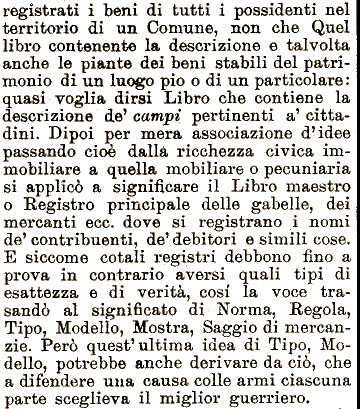 registrati i beni di tutti i possidenti nel
territorio di un Comune, non che Quel
libro contenente la descrizione e talvolta
anche le piante dei beni stabili del patri-
monio di un luogo pio o di un particolare:
quasi voglia dirsi Libro che contiene la
descrizione de' campi pertinenti a' citta-
dini. Dipoi per mera associazione d'idee
passando cioè dalla ricchezza civica im-
mobiliare a quella mobiliare o pecuniaria
si applicò a significare il Libro maestro
o Registro principale delle gabelle, dei
mercanti ecc. dove si registrano i nomi
de' contribuenti, de' debitori e simili cose.
E siccome cotali registri debbono fino a
prova in contrario aversi quali tipi di
esattezza e di verità, così la voce tra-
sandò al significato di Norma, Regola,
Tipo, Modello, Mostra, Saggio di mercan-
zie. Però quest' ultima idea di Tipo, Mo-
dello, potrebbe anche derivare da ciò, che
a difendere una causa colle armi ciascuna
parte sceglieva il miglior guerriero.